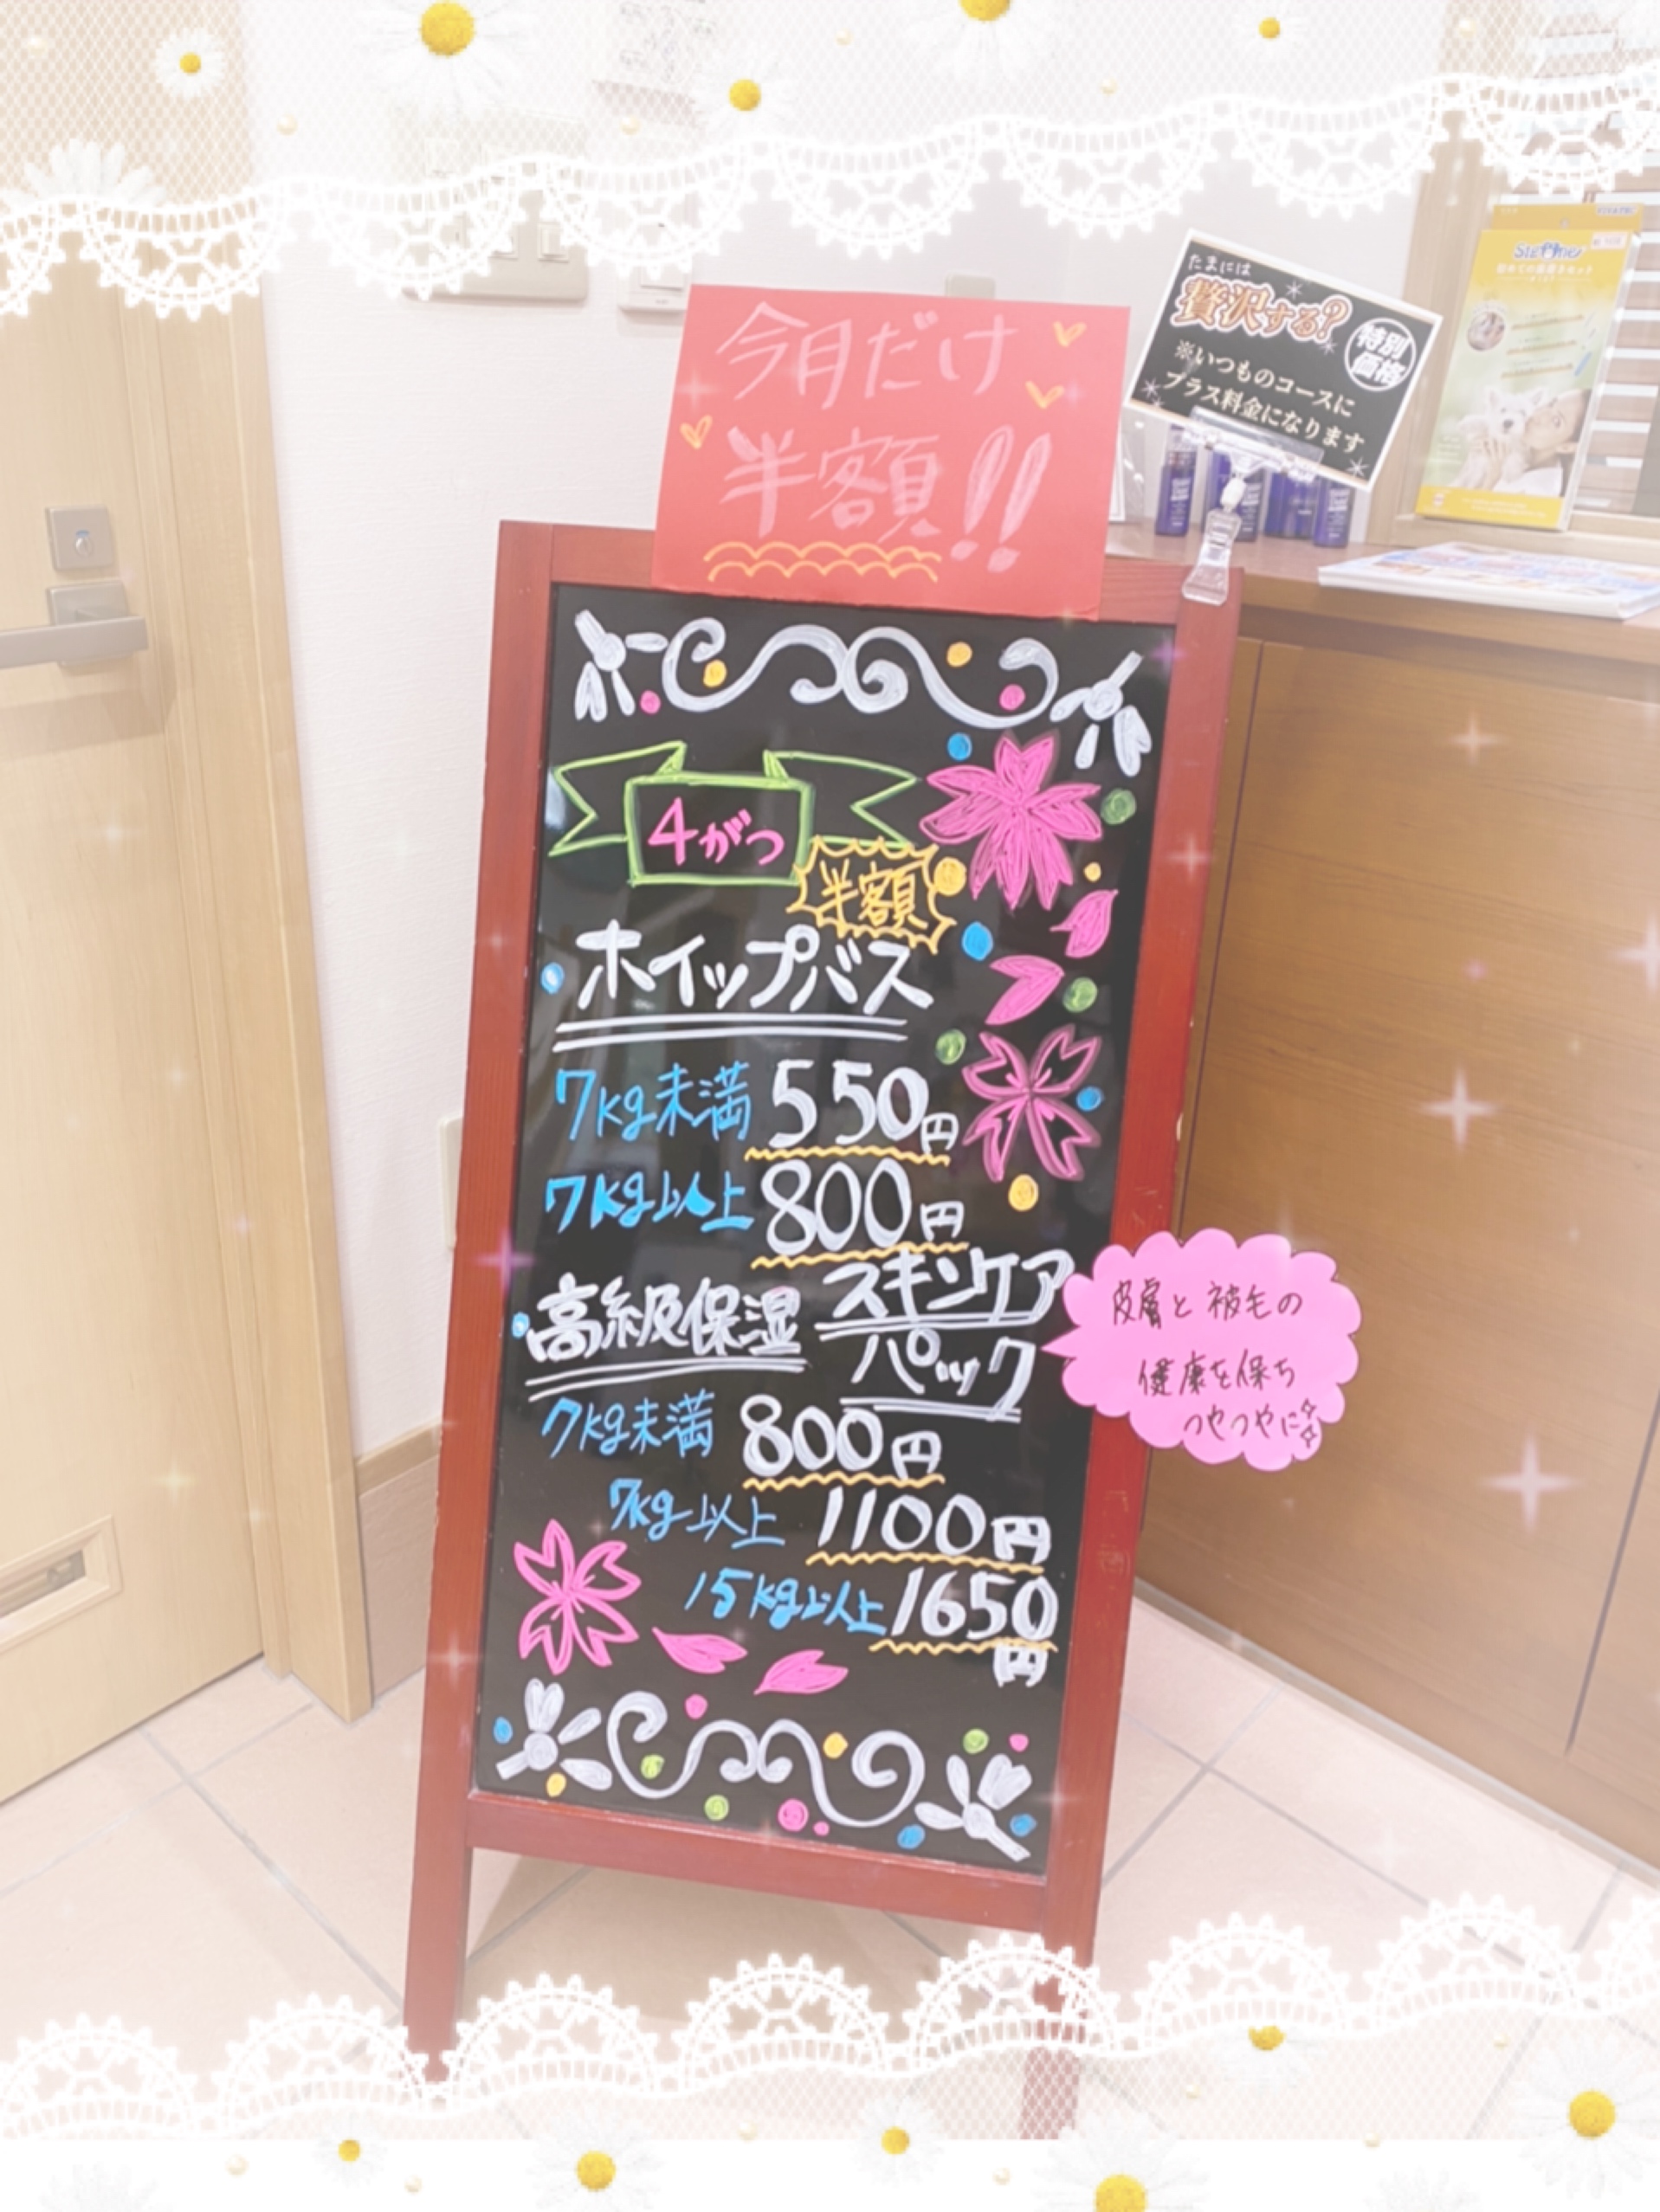 今月だけ
半額!!
たまには
贅沢する?
特別
価格
※いつものコースに
プラス料金になります
4がつ
半額
ホイップバス
7kg未満 550円
7kg以上 800円
高級保湿 スキンケア
パック
7kg未満 800円
7kg以上 1100円
15kg以上 1650
円
皮膚と被毛の
健康を保ち
つやつやに